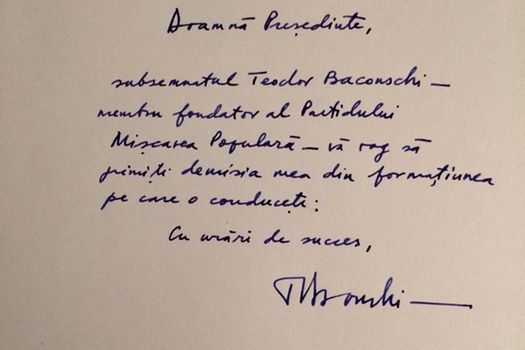 Doamnă Președinte,
subsemnatul Teodor Baconschi –
membru fondator al Partidului
Mișcarea Populară – vă rog să
primiți demisia mea din formațiunea
pe care o conduceți.
Cu urări de succes,